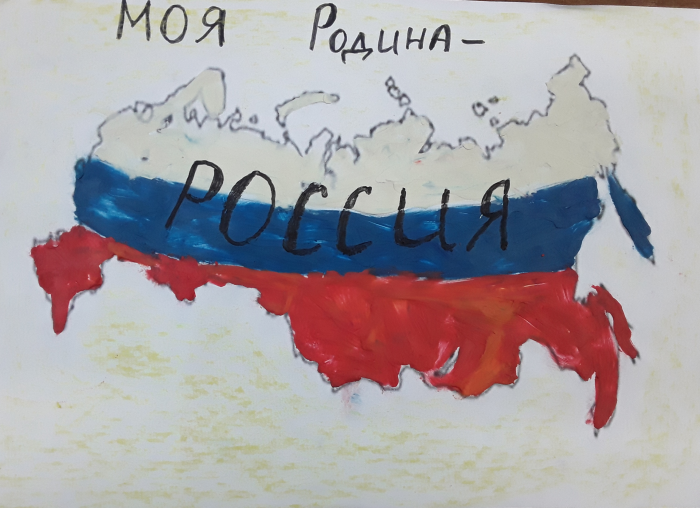 Моя Родина-
РОССИЯ